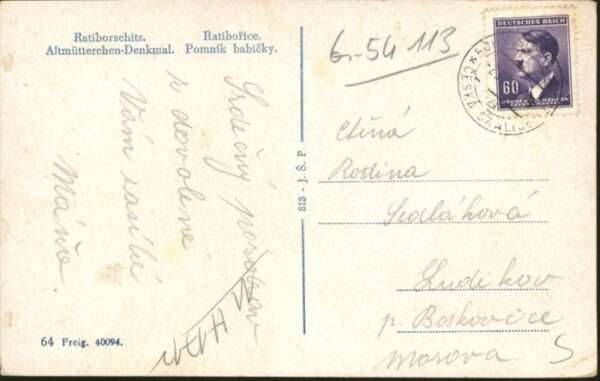 Ratiborschitz.
Altmütterchen-Denkmal.
Ratibořice.
Pomník babičky.
Srdečný pozdrav
z dovolené
Vám zasílá
Máňa.
64 Freig. 40094.
SIS - J. Š. P.
6-54 113
DEUTSCHES REICH
60
ČESKÁ SKALICE
Ctěná
Rodina
Sedláková
Ludikov
p. Boskovice
Morava.
S